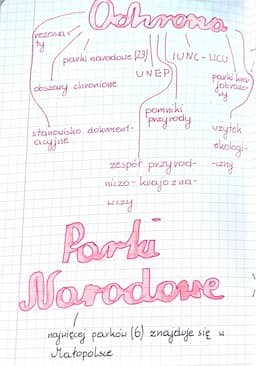 Ochrona
rezerwa-
ty
parki narodowe (23)
IUNC - UCU
UNEP
obszary chronione
parki kraj
jobrazo-
wy
pomniki
przyrody
stanowisko dokument-
acyjne
użytek
ekologi-
-czny
zespół przyrod-
niczo-krajozna-
wczy
Parki
Narodowe
najwięcej parków (6) znajduje się w
Małopolsce